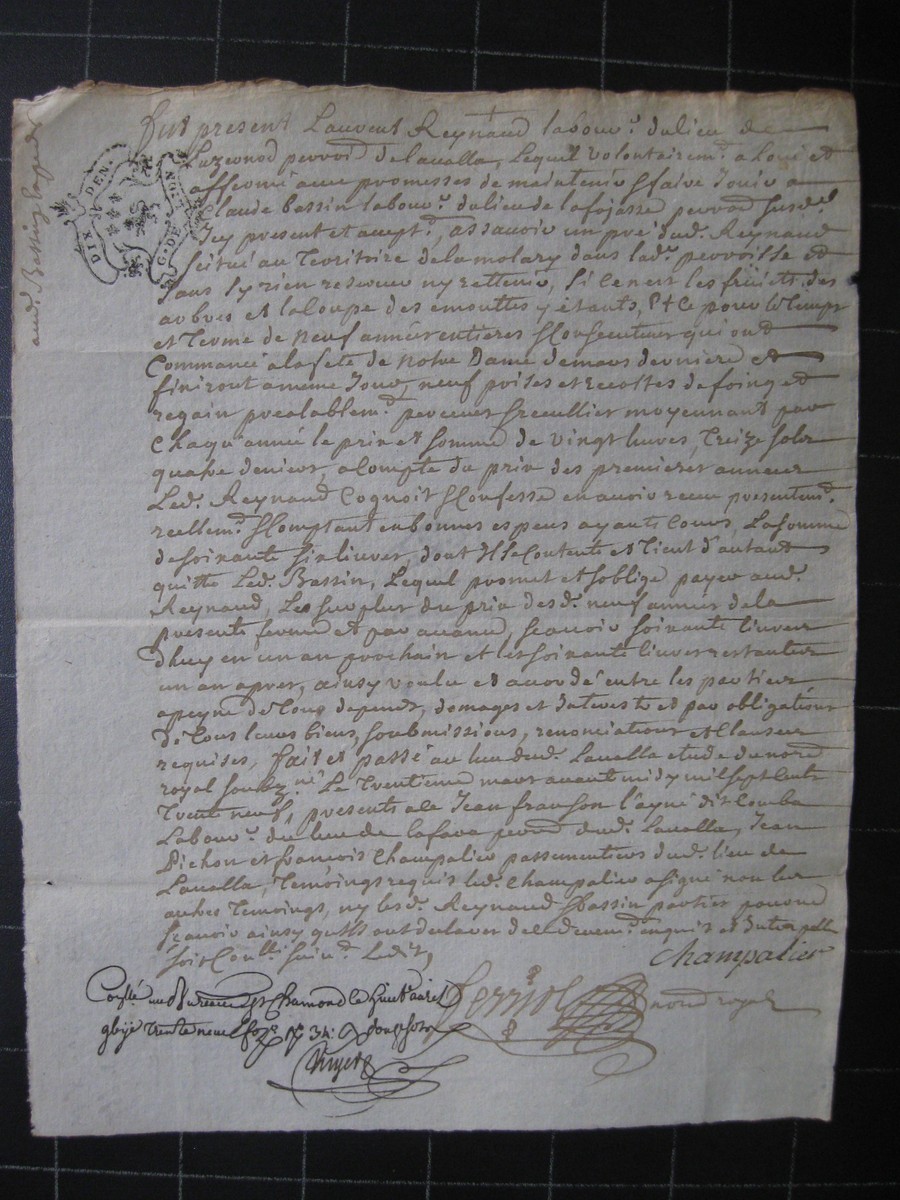 DIX DEN.
G. DE LYON
aud. Bassin
fut present Laurent Reynaud labour. du lieu de
Luzernod parroi. de Lavalla, Lequel volontairem. a Loué et
affermé aux promesses de maintenir & faire Jouir a
Claude bassin labour. du lieu de lafojasse parroi susd.
Icy present et accept., assavoir un pré dud. Reynaud
scitué au Territoire de la molary dans lad. parroisse et
sans sy rien reserver ny rettenir, si ce nest les fruicts des
arbres et la coupe des emouttes y étants, & Ce pour le temps
et Terme de neuf années entieres & consecutives qui ont
Commancé a la fete de Notre Dame de mars derniere et
finiront a meme Jour, neuf prises et recoltes de foing et
regain prealablem. percues & ceullies moyennant par
Chaqu'année le prix et somme de vingt livres, treize sols
quatre deniers, a Compte du prix des premieres années
Led. Reynaud Cognoit & Confesse en avoir receu presentem.
reellem. & Comptant en bonnes espens ayants Cours, La somme
de soixante six livres, dont Il se Contente et Tient d'autant
quitte Led. Bassin, Lequel promet et soblige payer aud.
Reynaud, Le surplus du prix desd. neuf années de la
presente ferme et par avance, scavoir soixante livres
dhuy en un an prochain et les soixante livres restantes
un an apres, ainsy voulu et accordé entre les parties
a peyne de tous depends, domages et Interests et par obligations
de tous leurs biens, soubmissions, renonciations et Clauses
requises, fait et passé au lieu dud. Lavalla etude du no.re
royal soubz.né Le Trentieme mars avant midy mil sept cents
Trente neuf, presents a ce Jean franson l'ayné dit Comba
Labour. du lieu de Lafara parroi. dud. Lavalla, Jean
Pichon et françois Champalier passementiers dud. lieu de
Lavalla, Temoings requis led. Champalier a signé non les
autres Temoings, ny lesd. Reynaud & bassin parties pour ne
scavoir ainsy qu'ils ont declarer de ce deuem. enquis et Interpellés
soit Coullé suiv. Ledit,
Champalier
Ferriol no.re royal
Con.lé au Bureau de St Chamond le huit avril
trente neuf 34